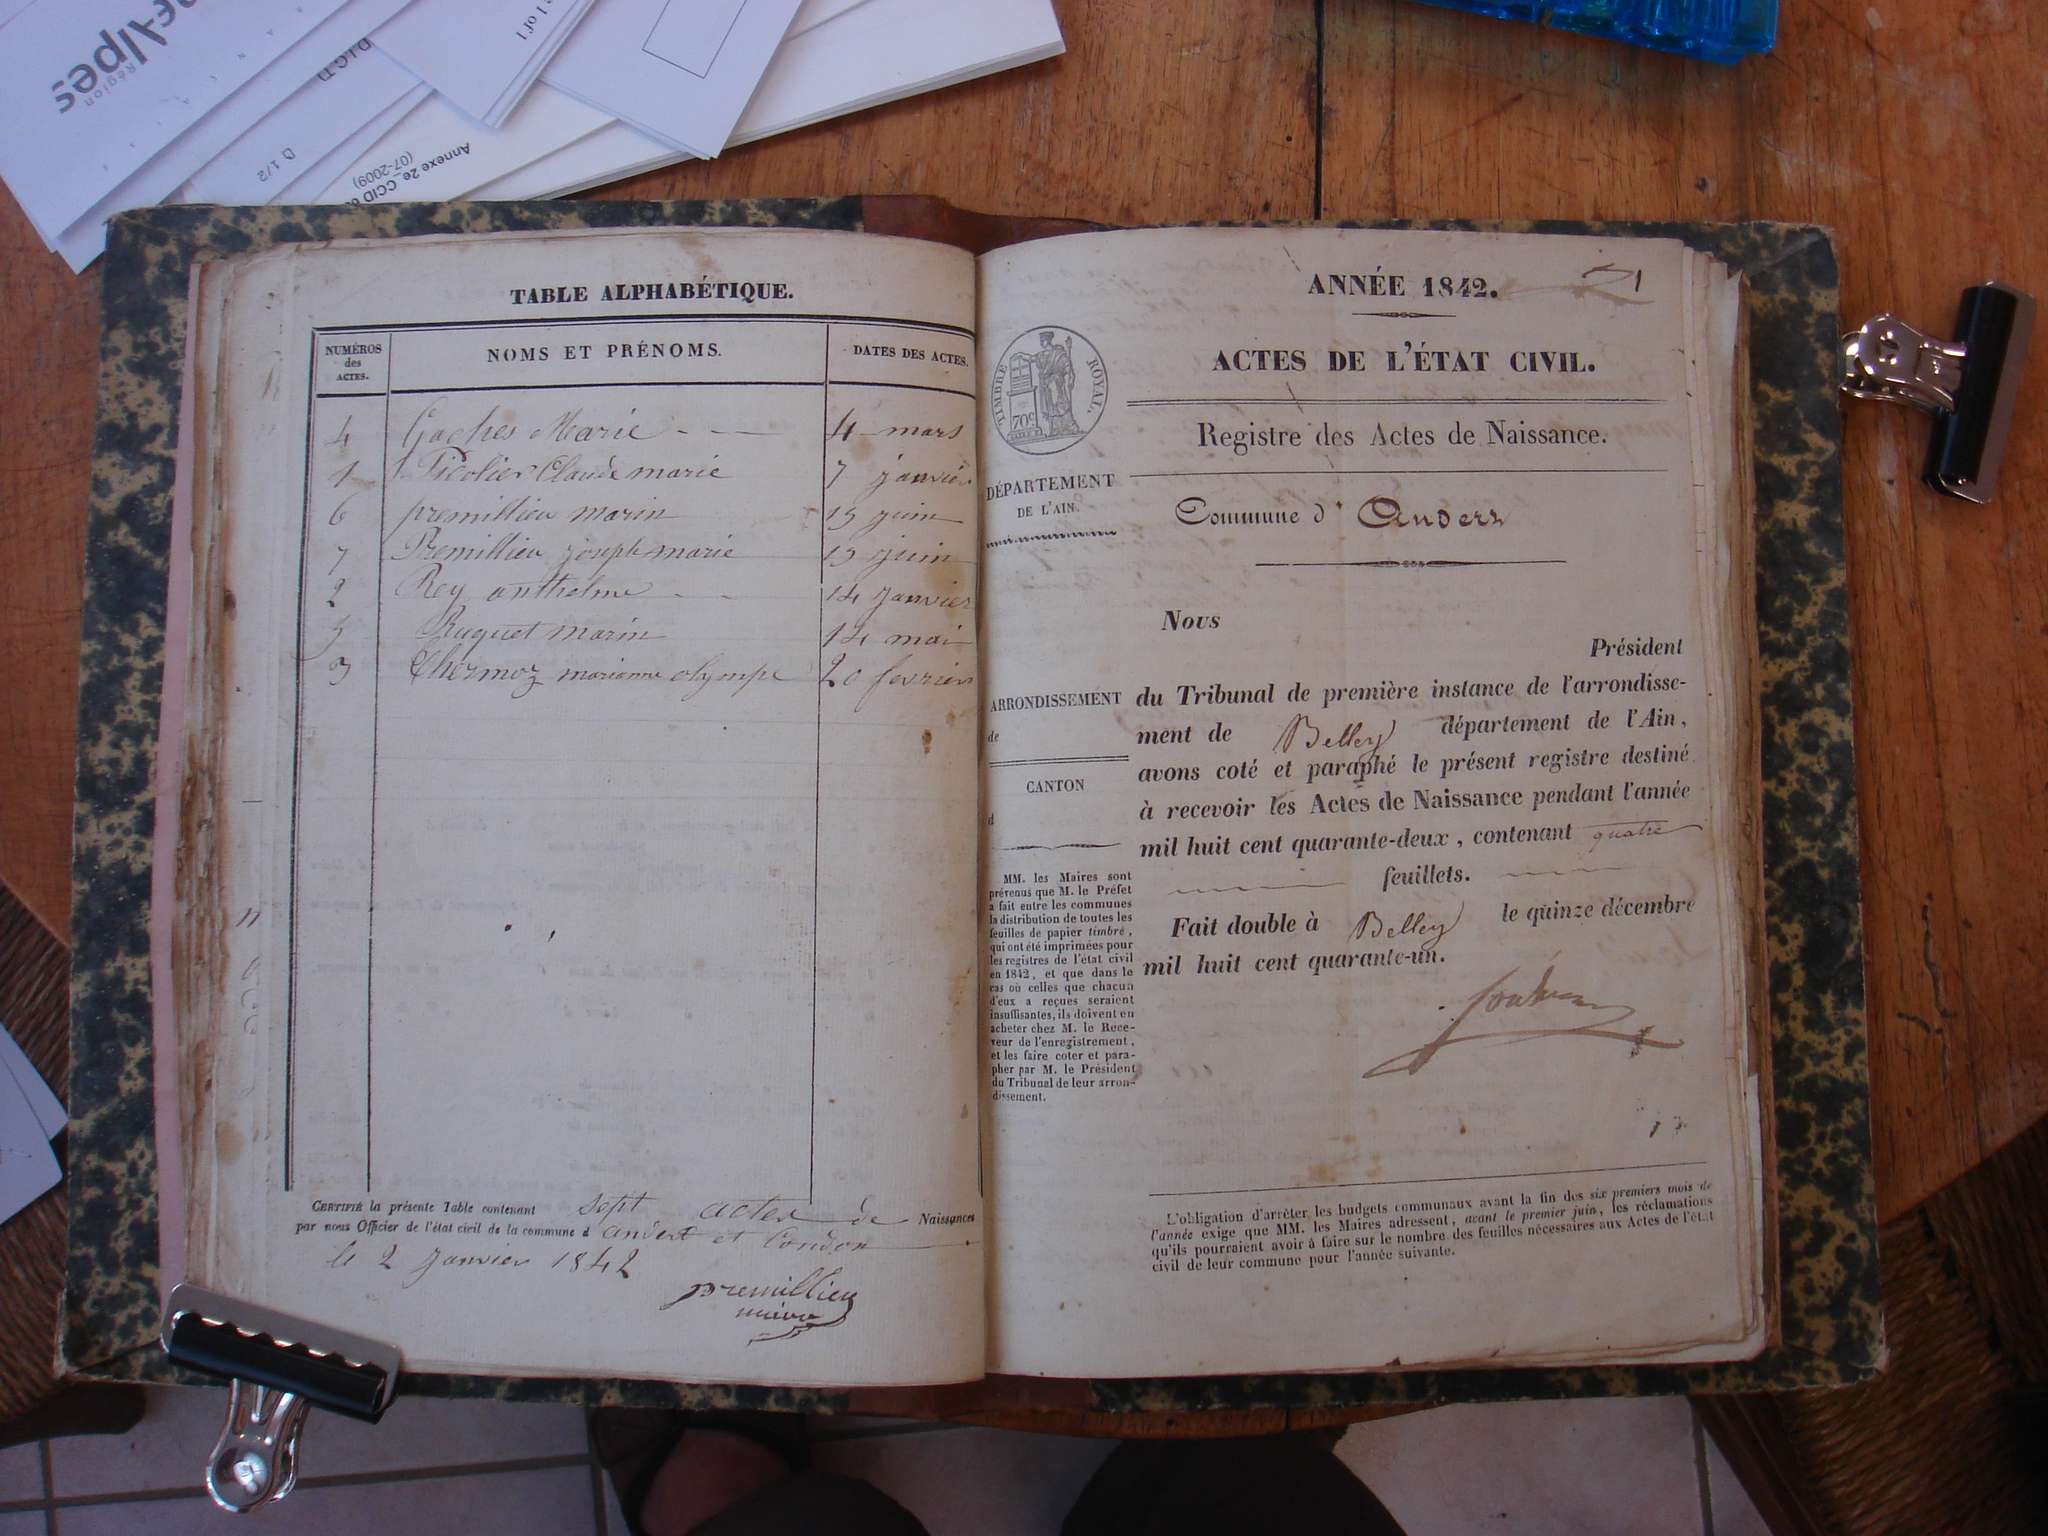 Région
e-Alpes
D.I.C.D
1 of 1
D 1/2
Annexe 2e_CCID
(07-2009)
TABLE ALPHABÉTIQUE.
NUMÉROS des ACTES.
NOMS ET PRÉNOMS.
DATES DES ACTES.
4 Gaches Marie 4 mars
1 Picolier Claude marie 7 janvier
6 premillieu marin 15 juin
7 Premillieu joseph marie 15 juin
2 Rey anthelme 14 janvier
5 Ruguet marin 14 mai
3 Thermoz marianne olympe 20 fevrier
CERTIFIÉ la présente Table contenant sept actes de Naissances
par nous Officier de l'état civil de la commune d andert et Condon
le 2 janvier 1842
premillieu
maire
ANNÉE 1842.
1
ACTES DE L'ÉTAT CIVIL.
TIMBRE ROYAL.
70c
Registre des Actes de Naissance.
DÉPARTEMENT
DE L'AIN.
Commune d' Andert
Nous
Président
ARRONDISSEMENT
de
CANTON
d
du Tribunal de première instance de l'arrondisse-
ment de Belley département de l'Ain,
avons coté et paraphé le présent registre destiné
à recevoir les Actes de Naissance pendant l'année
mil huit cent quarante-deux, contenant quatre
feuillets.
Fait double à Belley le quinze décembre
mil huit cent quarante-un.
MM. les Maires sont
prévenus que M. le Préfet
a fait entre les communes
la distribution de toutes les
feuilles de papier timbré,
qui ont été imprimées pour
les registres de l'état civil
en 1842, et que dans le
cas où celles que chacun
d'eux a reçues seraient
insuffisantes, ils doivent en
acheter chez M. le Rece-
veur de l'enregistrement,
et les faire coter et para-
pher par M. le Président
du Tribunal de leur arron-
dissement.
L'obligation d'arrêter les budgets communaux avant la fin des six premiers mois de
l'année exige que MM. les Maires adressent, avant le premier juin, les réclamations
qu'ils pourraient avoir à faire sur le nombre des feuilles nécessaires aux Actes de l'état
civil de leur commune pour l'année suivante.